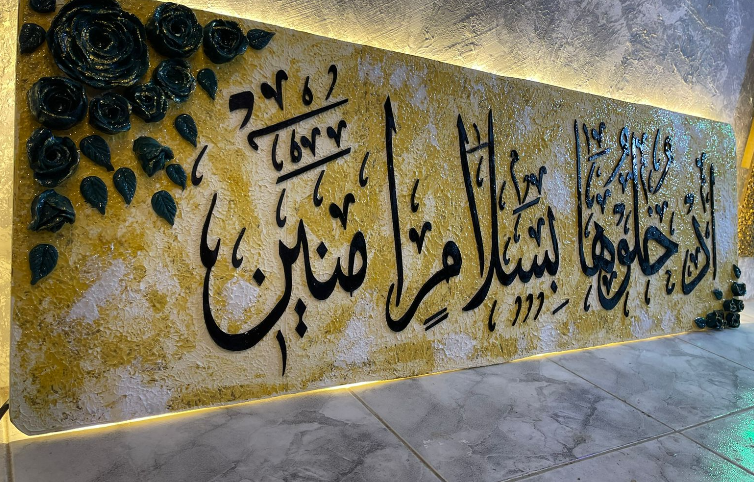 اُدْخُلُوْهَا بِسَلَامٍ اٰمِنِيْنَ